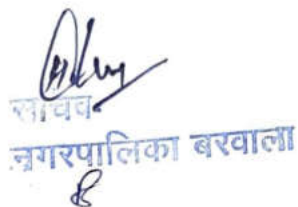 सचिव
नगरपालिका बरवाला